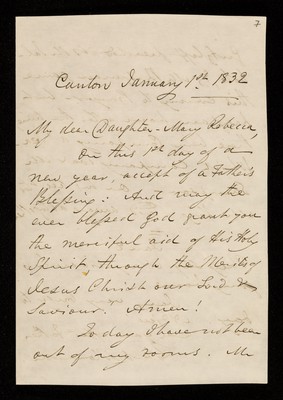 7
Canton January 1st 1832
My dear Daughter - Mary Rebecca,
On this 1st day of a
new year, accept of a Father's
Blessing: And may the
ever blessed God grant you
the merciful aid of His Holy
Spirit through the Merits of
Jesus Christ our Lord &
Saviour. Amen!
To day I have not been
out of my rooms. Mr